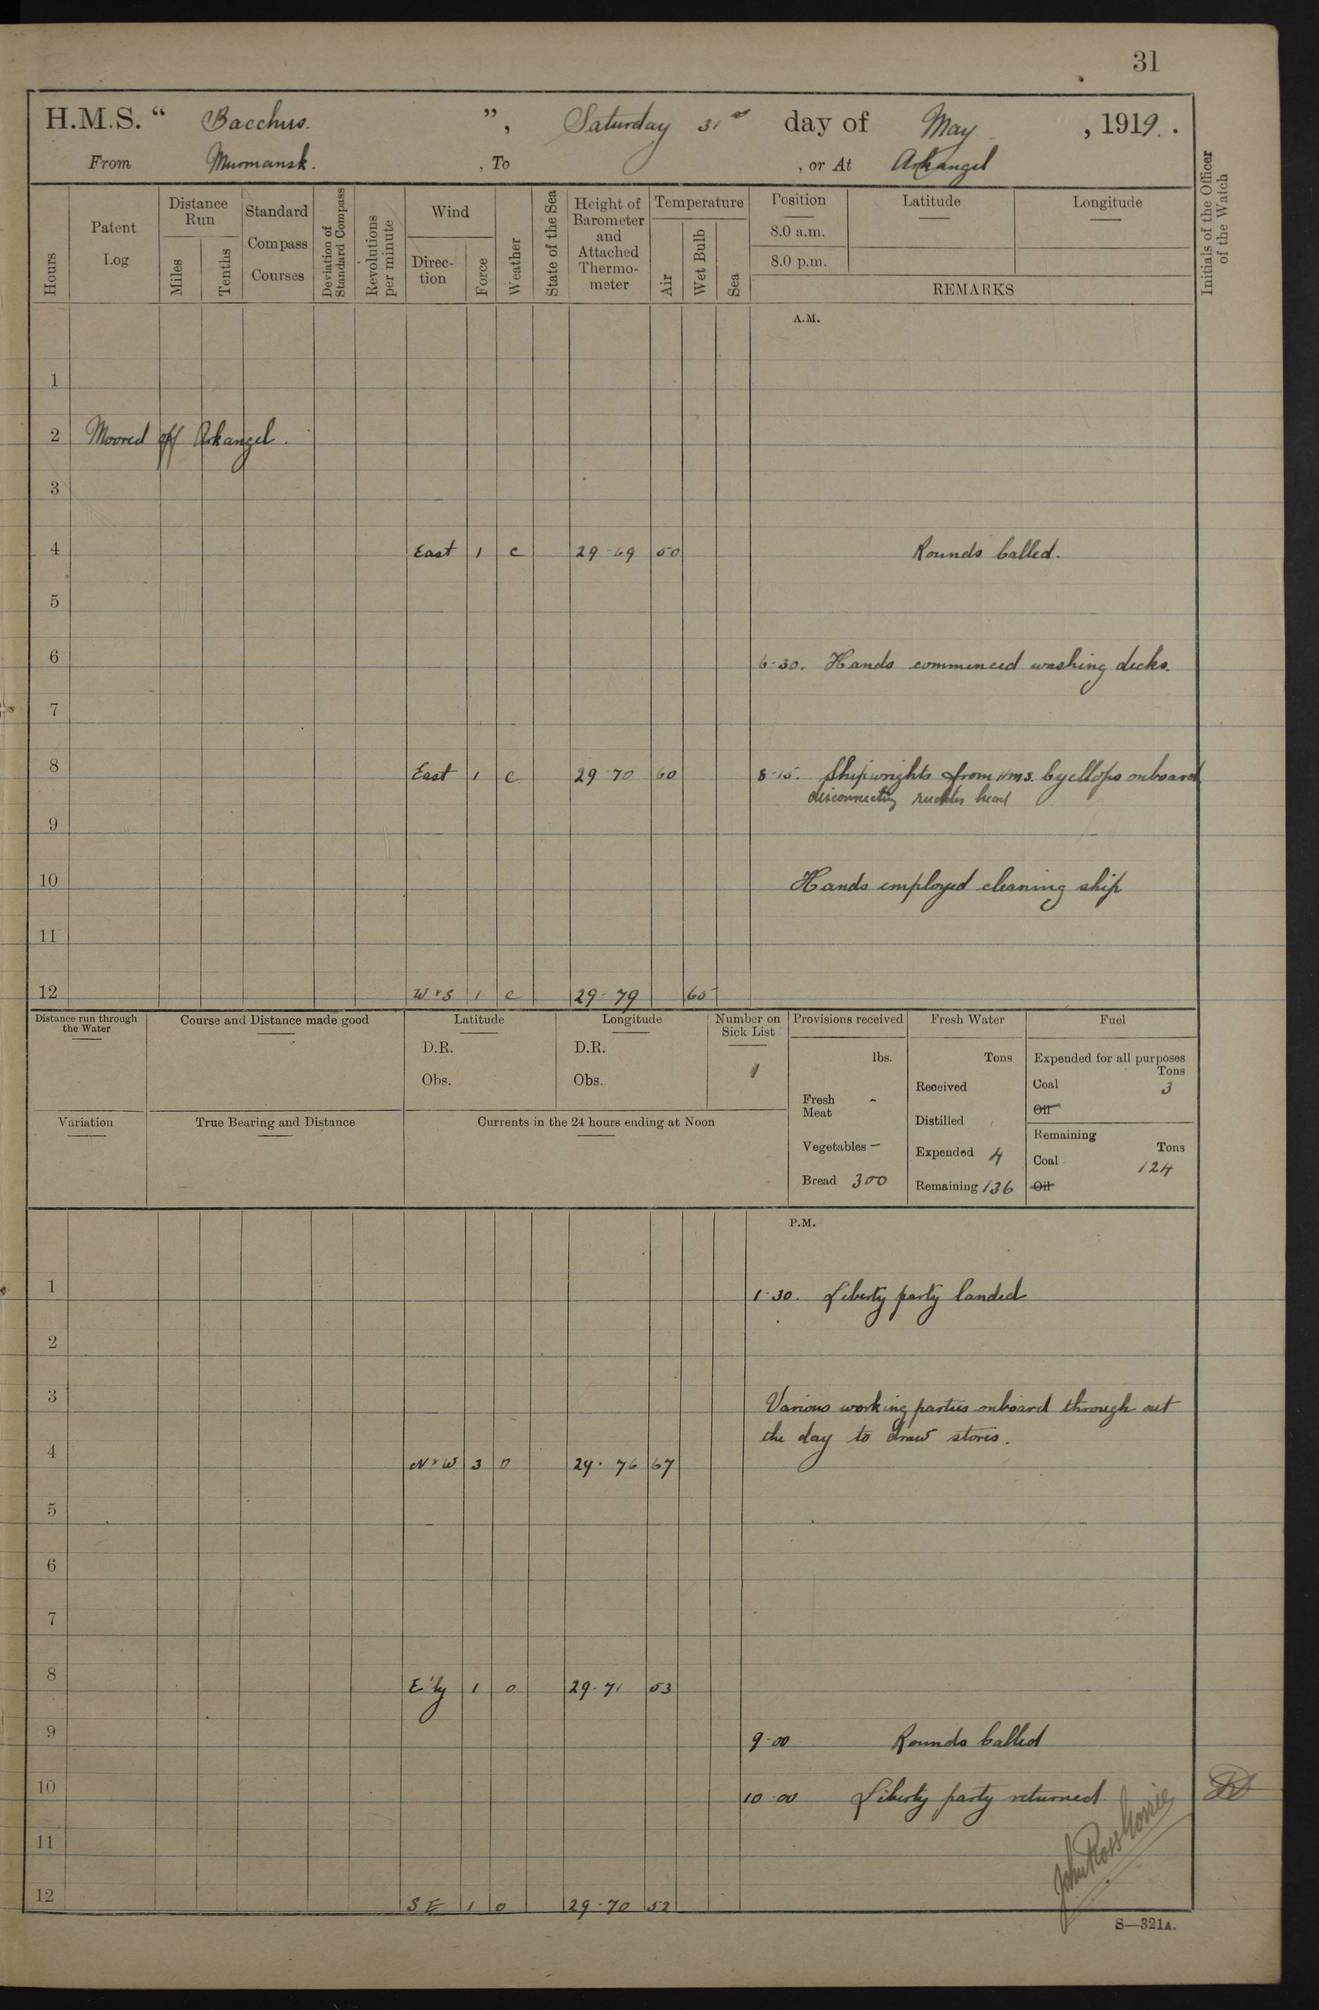 31
H.M.S. “ Bacchus. ”, Saturday 31st day of May , 1919. .
From Murmansk. , To , or At Arkangel
Hours
Patent Log
Distance Run
Miles
Tenths
Standard Compass Courses
Deviation of Standard Compass
Revolutions per minute
Wind
Direc-tion
Force
Weather
State of the Sea
Height of Barometer and Attached Thermo-meter
Temperature
Air
Wet Bulb
Sea
Position
8.0 a.m.
8.0 p.m.
Latitude
Longitude
REMARKS
Initials of the Officer of the Watch
A.M.
1
2 Moored off Arkangel.
3
4 East 1 c 29·69 50 Rounds Called.
5
6 6·30. Hands commenced washing decks.
7
8 East 1 c 29·70 60 8·15. Shipwrights from HMS. Cycllops onboard
disconnecting rudder head
9
10 Hands employed cleaning ship
11
12 W×S 1 c 29·79 65
Distance run through the Water
Course and Distance made good
Latitude
D.R.
Obs.
Longitude
D.R.
Obs.
Number on Sick List
1
Provisions received
lbs.
Fresh Meat -
Vegetables —
Bread 300
Fresh Water
Tons
Received
Distilled
Expended 4
Remaining 136
Fuel
Expended for all purposes
Tons
Coal 3
Oil
Remaining
Tons
Coal 124
Oil
Variation
True Bearing and Distance
Currents in the 24 hours ending at Noon
P.M.
1 1·30. Liberty party landed
2
3 Various working parties onboard through out
the day to draw stores.
4 N×W 3 0 29·76 67
5
6
7
8 E'ly 1 0 29·71 53
9 9·00 Rounds Called
10 10·00 Liberty party returned
11
John Ross Gorrie
12 S E 1 0 29·70 52
S—321A.